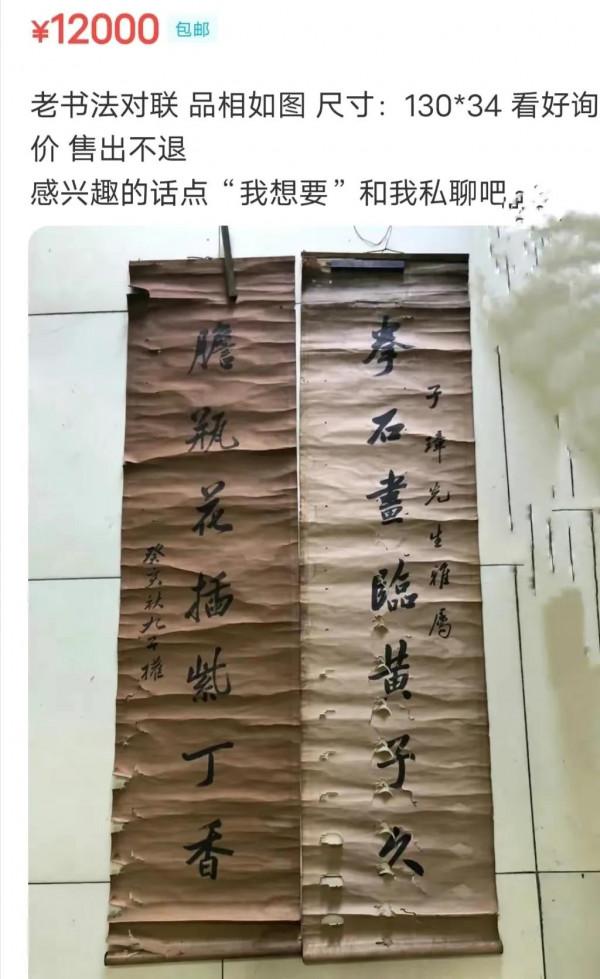 ¥12000 包邮
老书法对联 品相如图 尺寸：130*34 看好询
价 售出不退
感兴趣的话点“我想要”和我私聊吧。
拳石畫臨黃子久
子璋先生雅屬
膽瓶花插紫丁香
癸亥秋九